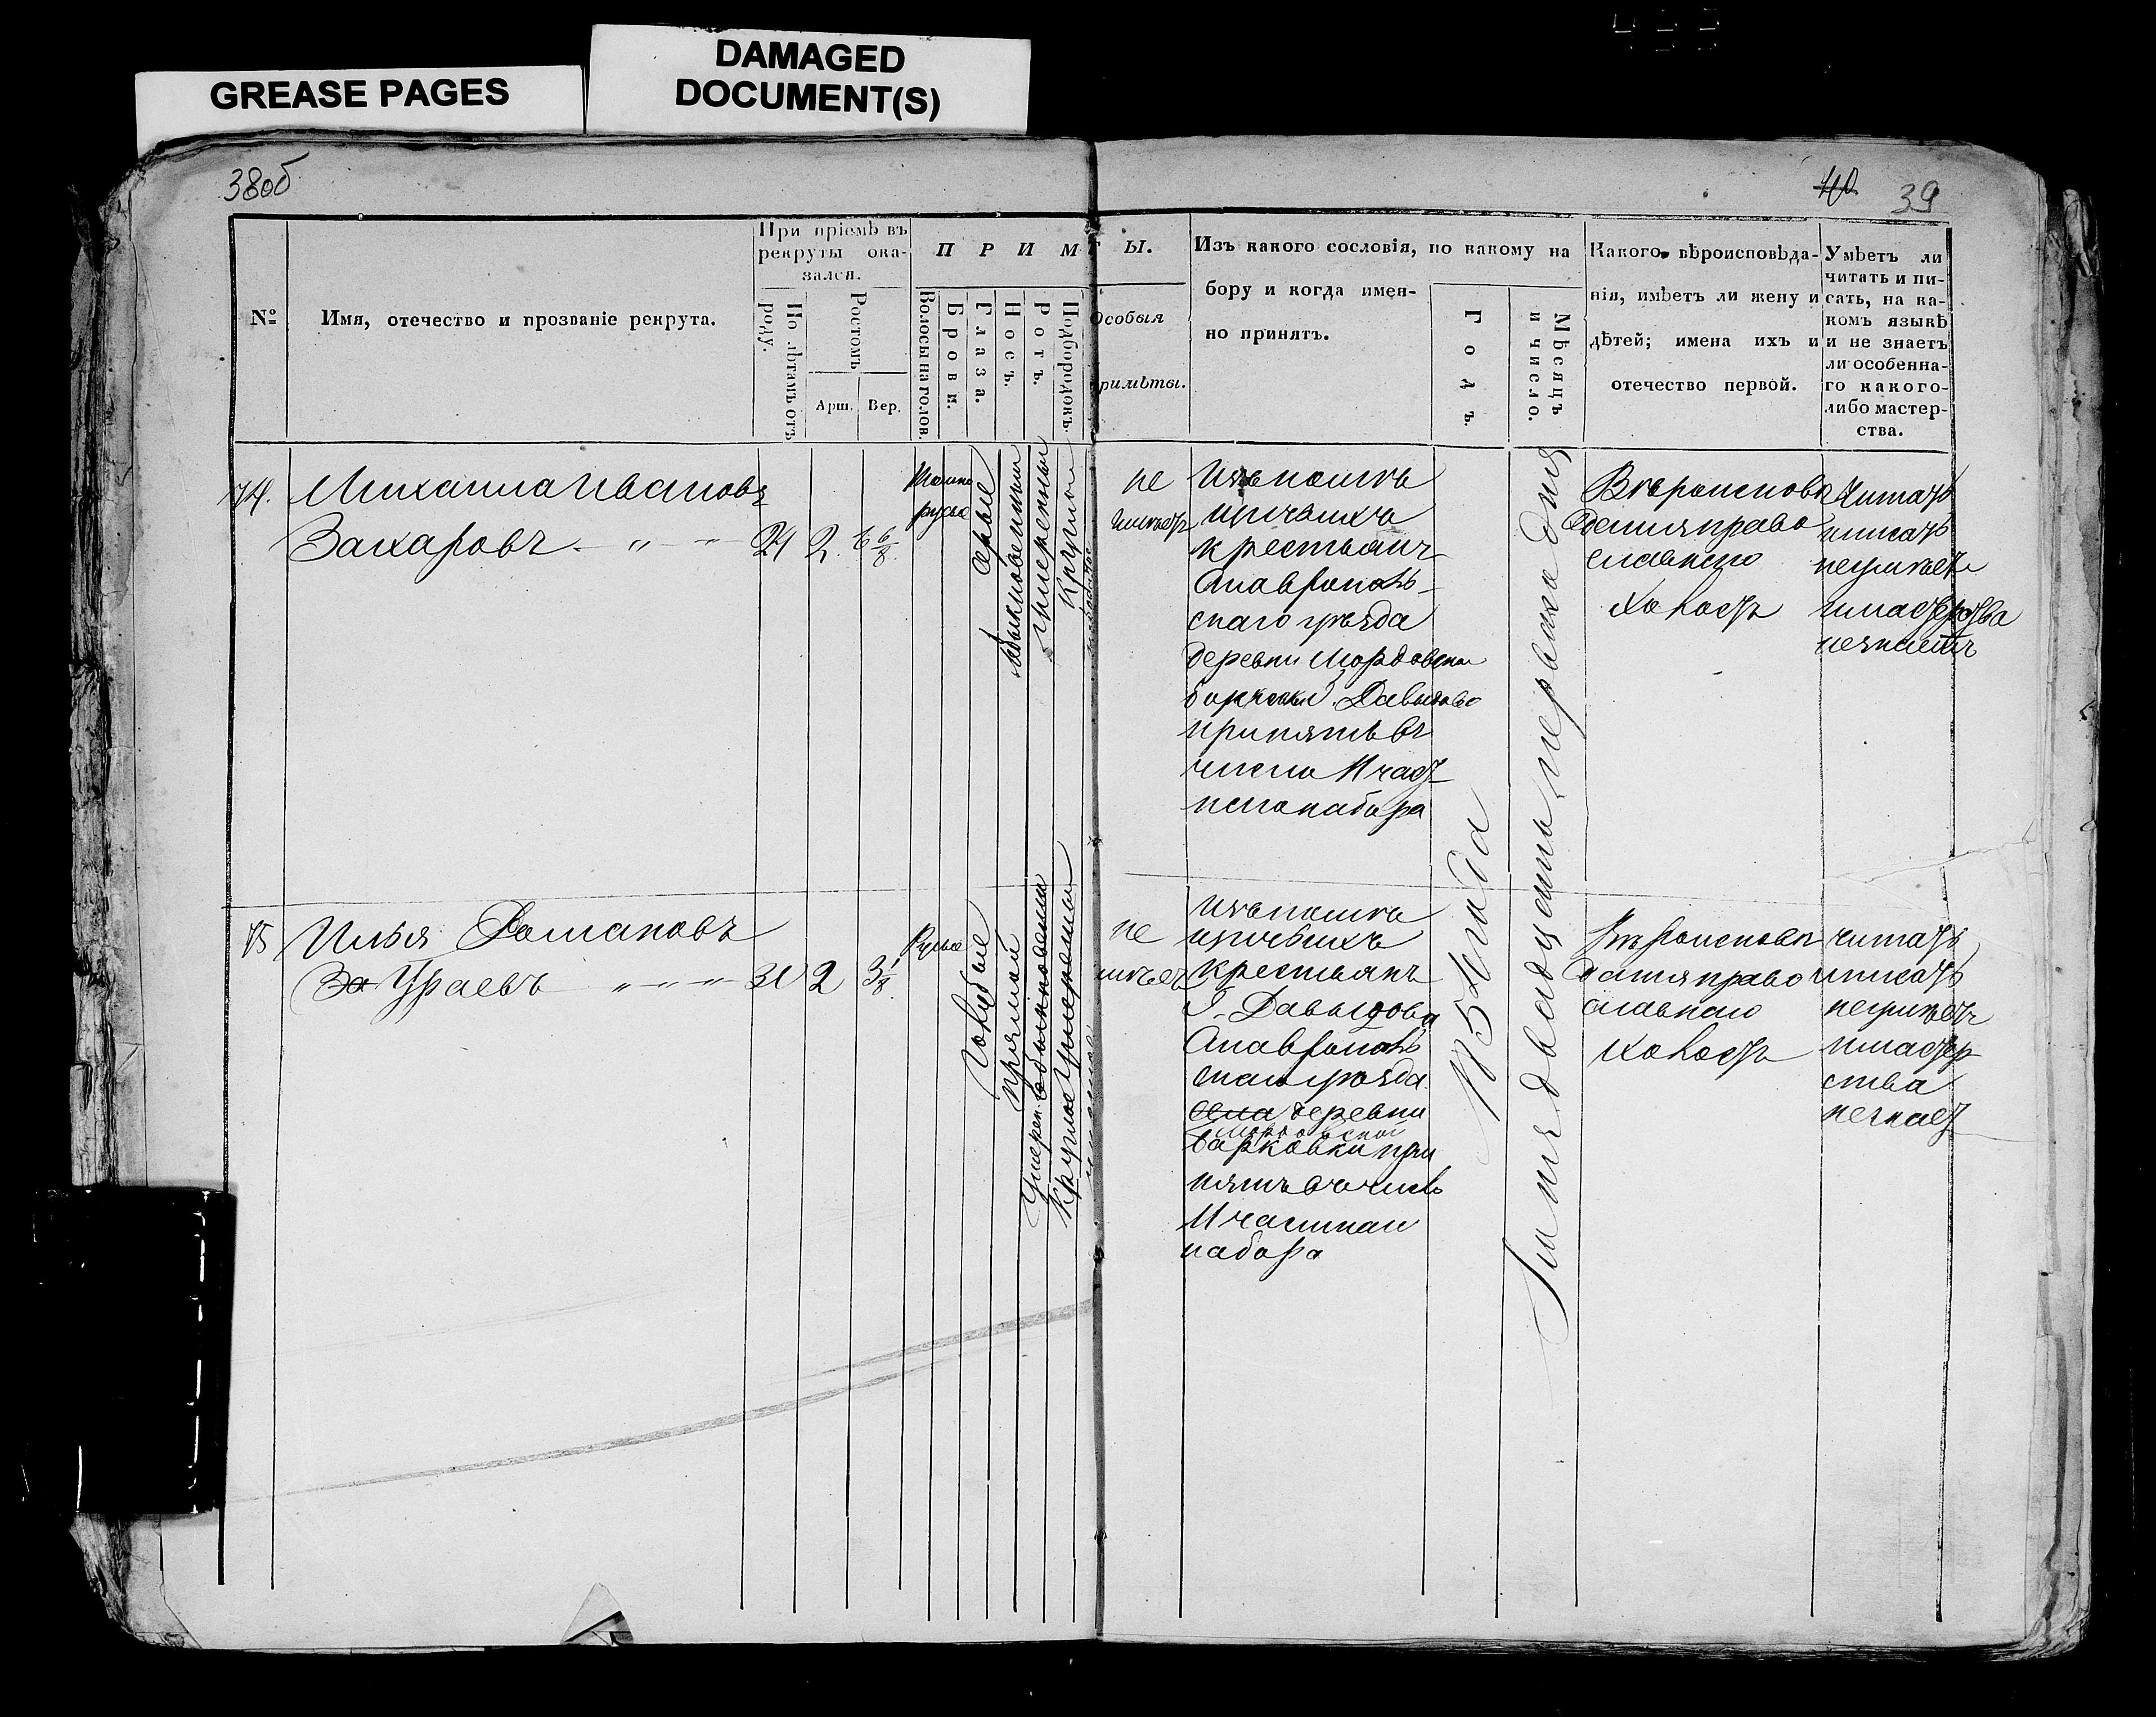 GREASE PAGES
DAMAGED
DOCUMENT(S)
38об
40 39
№
Имя, отечество и прозваніе рекрута.
При пріемѣ въ
рекруты ока-
зался.
По лѣтамъ отъ
роду.
Ростомъ
Арш.
Вер.
П Р И М Ѣ Т Ы.
Волосы на голов.
Брови.
Глаза.
Носъ.
Ротъ.
Подбородокъ.
Особыя
римѣты.
Изъ какого сословія, по какому на
бору и когда имен-
но принятъ.
Годъ.
Мѣсяцъ
и число.
Какого вѣроисповѣда-
нія, имѣетъ ли жену и
дѣтей; имена ихъ и
отечество первой.
Умѣетъ ли
читать и пи-
сать, на ка-
комъ языкѣ
и не знаетъ
ли особенна-
го какого-
либо мастер-
ства.
74.
Михаила Ивановъ
Захаровъ 24 2. 6 6/8
Темно
русые
серые
обыкновенный
умеренный
круглый
не
имеетъ
Изъ помѣ
щичьихъ
крестьянъ
Ставрополь-
скаго уѣзда
деревни Мордовской
борковки Г. Давыдова
принятъ въ
число 11 част-
наго набора
Вѣроисповѣ
дания право
славнаго
холостъ
Читать
писать
неумѣетъ
и мастерства
незнаетъ
75
Илья Романовъ
За Ураевъ 30 2 3 1/8
Русые
голубые
прямой
обыкновенный
умерен.
круглое умеренный
не
имѣетъ
Изъ помѣ
щичьихъ
крестьянъ
Г. Давыдова
Ставрополь
скаго уѣзда
села деревни
Мордовской
Барковки при
нятъ в число
11 частнаго
набора
185 года
Сентя двадцать первого дня
Вѣроисповѣ
дания право
славнаго
холостъ
читать
писать
неумѣетъ
и мастер
ства
незнает